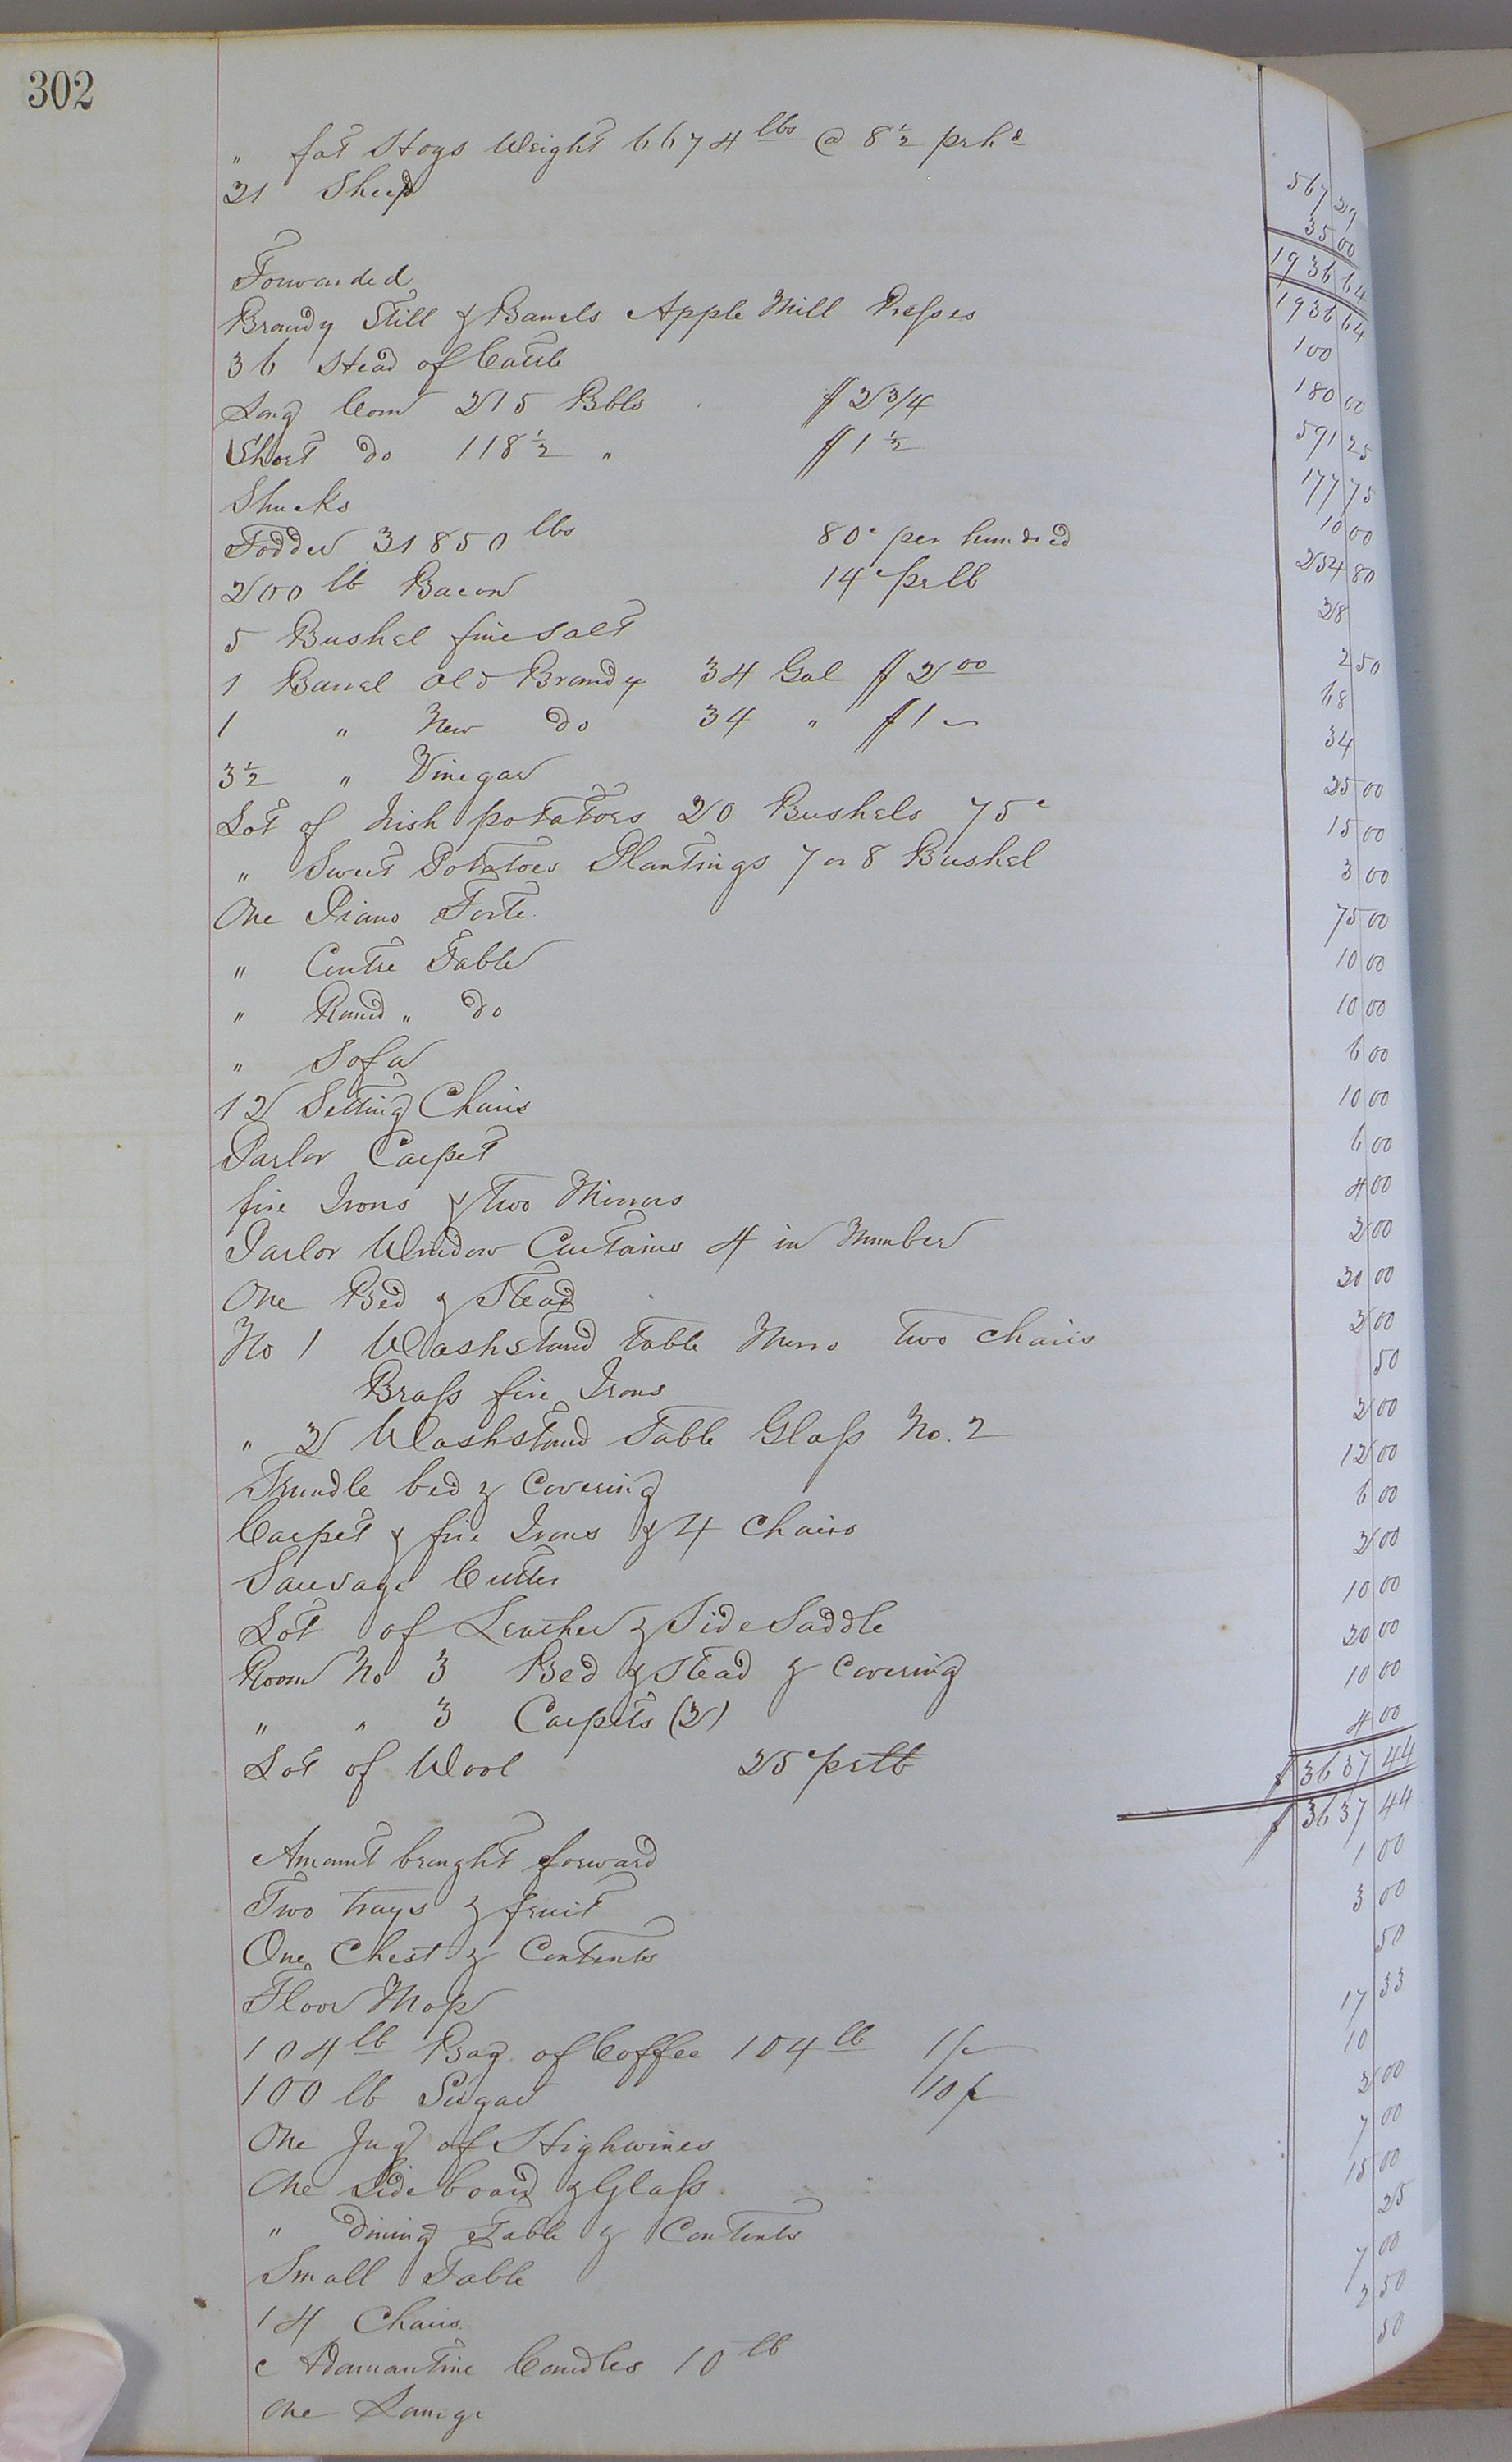 302
" fat Hogs Weight 6674 lbs @ 8½ pr hd 567 29
21 Sheep 35 00
1936 64
Forwarded 1936 64
Brandy Still & Barrels Apple Mill Presses 100
36 Head of Cattle 180 00
Long Corn 215 Bbls $2 3/4 591 25
Short do 118½ " $1½ 177 75
Shucks 10 00
Fodder 31850 lbs 80c per hundred 254 80
200 lb Bacon 14c pr lb 28
5 Bushel fine salt 2 50
1 Barrel Old Brandy 34 Gal $2 00 68
1 " New do 34 " $1 – 34
3½ " Vinegar 25 00
Lot of Irish potatoes 20 Bushels 75c 15 00
" Sweet Potatoes Plantings 7 or 8 Bushel 3 00
One Piano Forte 75 00
" Centre Table 10 00
" Round " do 10 00
" Sofa 6 00
12 Setting Chairs 10 00
Parlor Carpet 6 00
fire Irons & Two Mirrors 4 00
Parlor Window Curtains 4 in Number 2 00
One Bed & Stead 20 00
No 1 Washstand table Mirro Two chairs 2 00
Brass fire Irons 50
" 2 Washstand Table Glass No. 2 2 00
Trundle bed & Covering 12 00
Carpet & fire Irons & 4 Chairs 6 00
Sausage Cutter 2 00
Lot of Leather & Side Saddle 10 00
Room No 3 Bed & Stead & Covering 20 00
" " 3 Carpets (2) 10 00
Lot of Wool 25c pr lb 4 00
$ 3637 44
Amount brought forward $ 3637 44
Two trays & fruit 1 00
One Chest & Contents 3 00
Floor Mop 50
104 lb Bag of Coffee 104 lb 1/- 17 33
100 lb Sugar 10c 10
One Jug of Highwines 2 00
One Side board & Glass 7 00
" dining Table & Contents 15 00
Small Table 25
14 Chairs 7 00
Adamantine Candles 10 lb 2 50
One 50